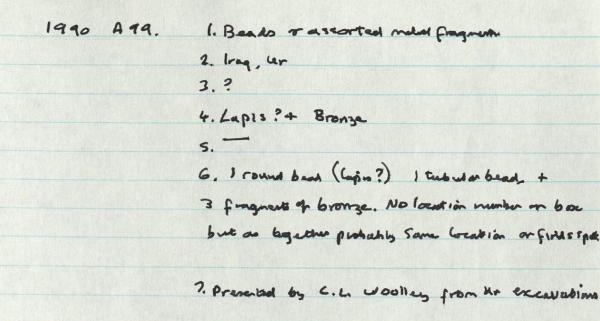 1990 A99. 1. Beads & assorted metal fragments
2. Iraq, Ur
3. ?
4. Lapis? + Bronze
5. —
6. 1 round bead (lapis?) 1 tubular bead +
3 fragments of bronze. No location number on box
but as together probably same location or findspot
7. Presented by C.L. Woolley from Ur excavations